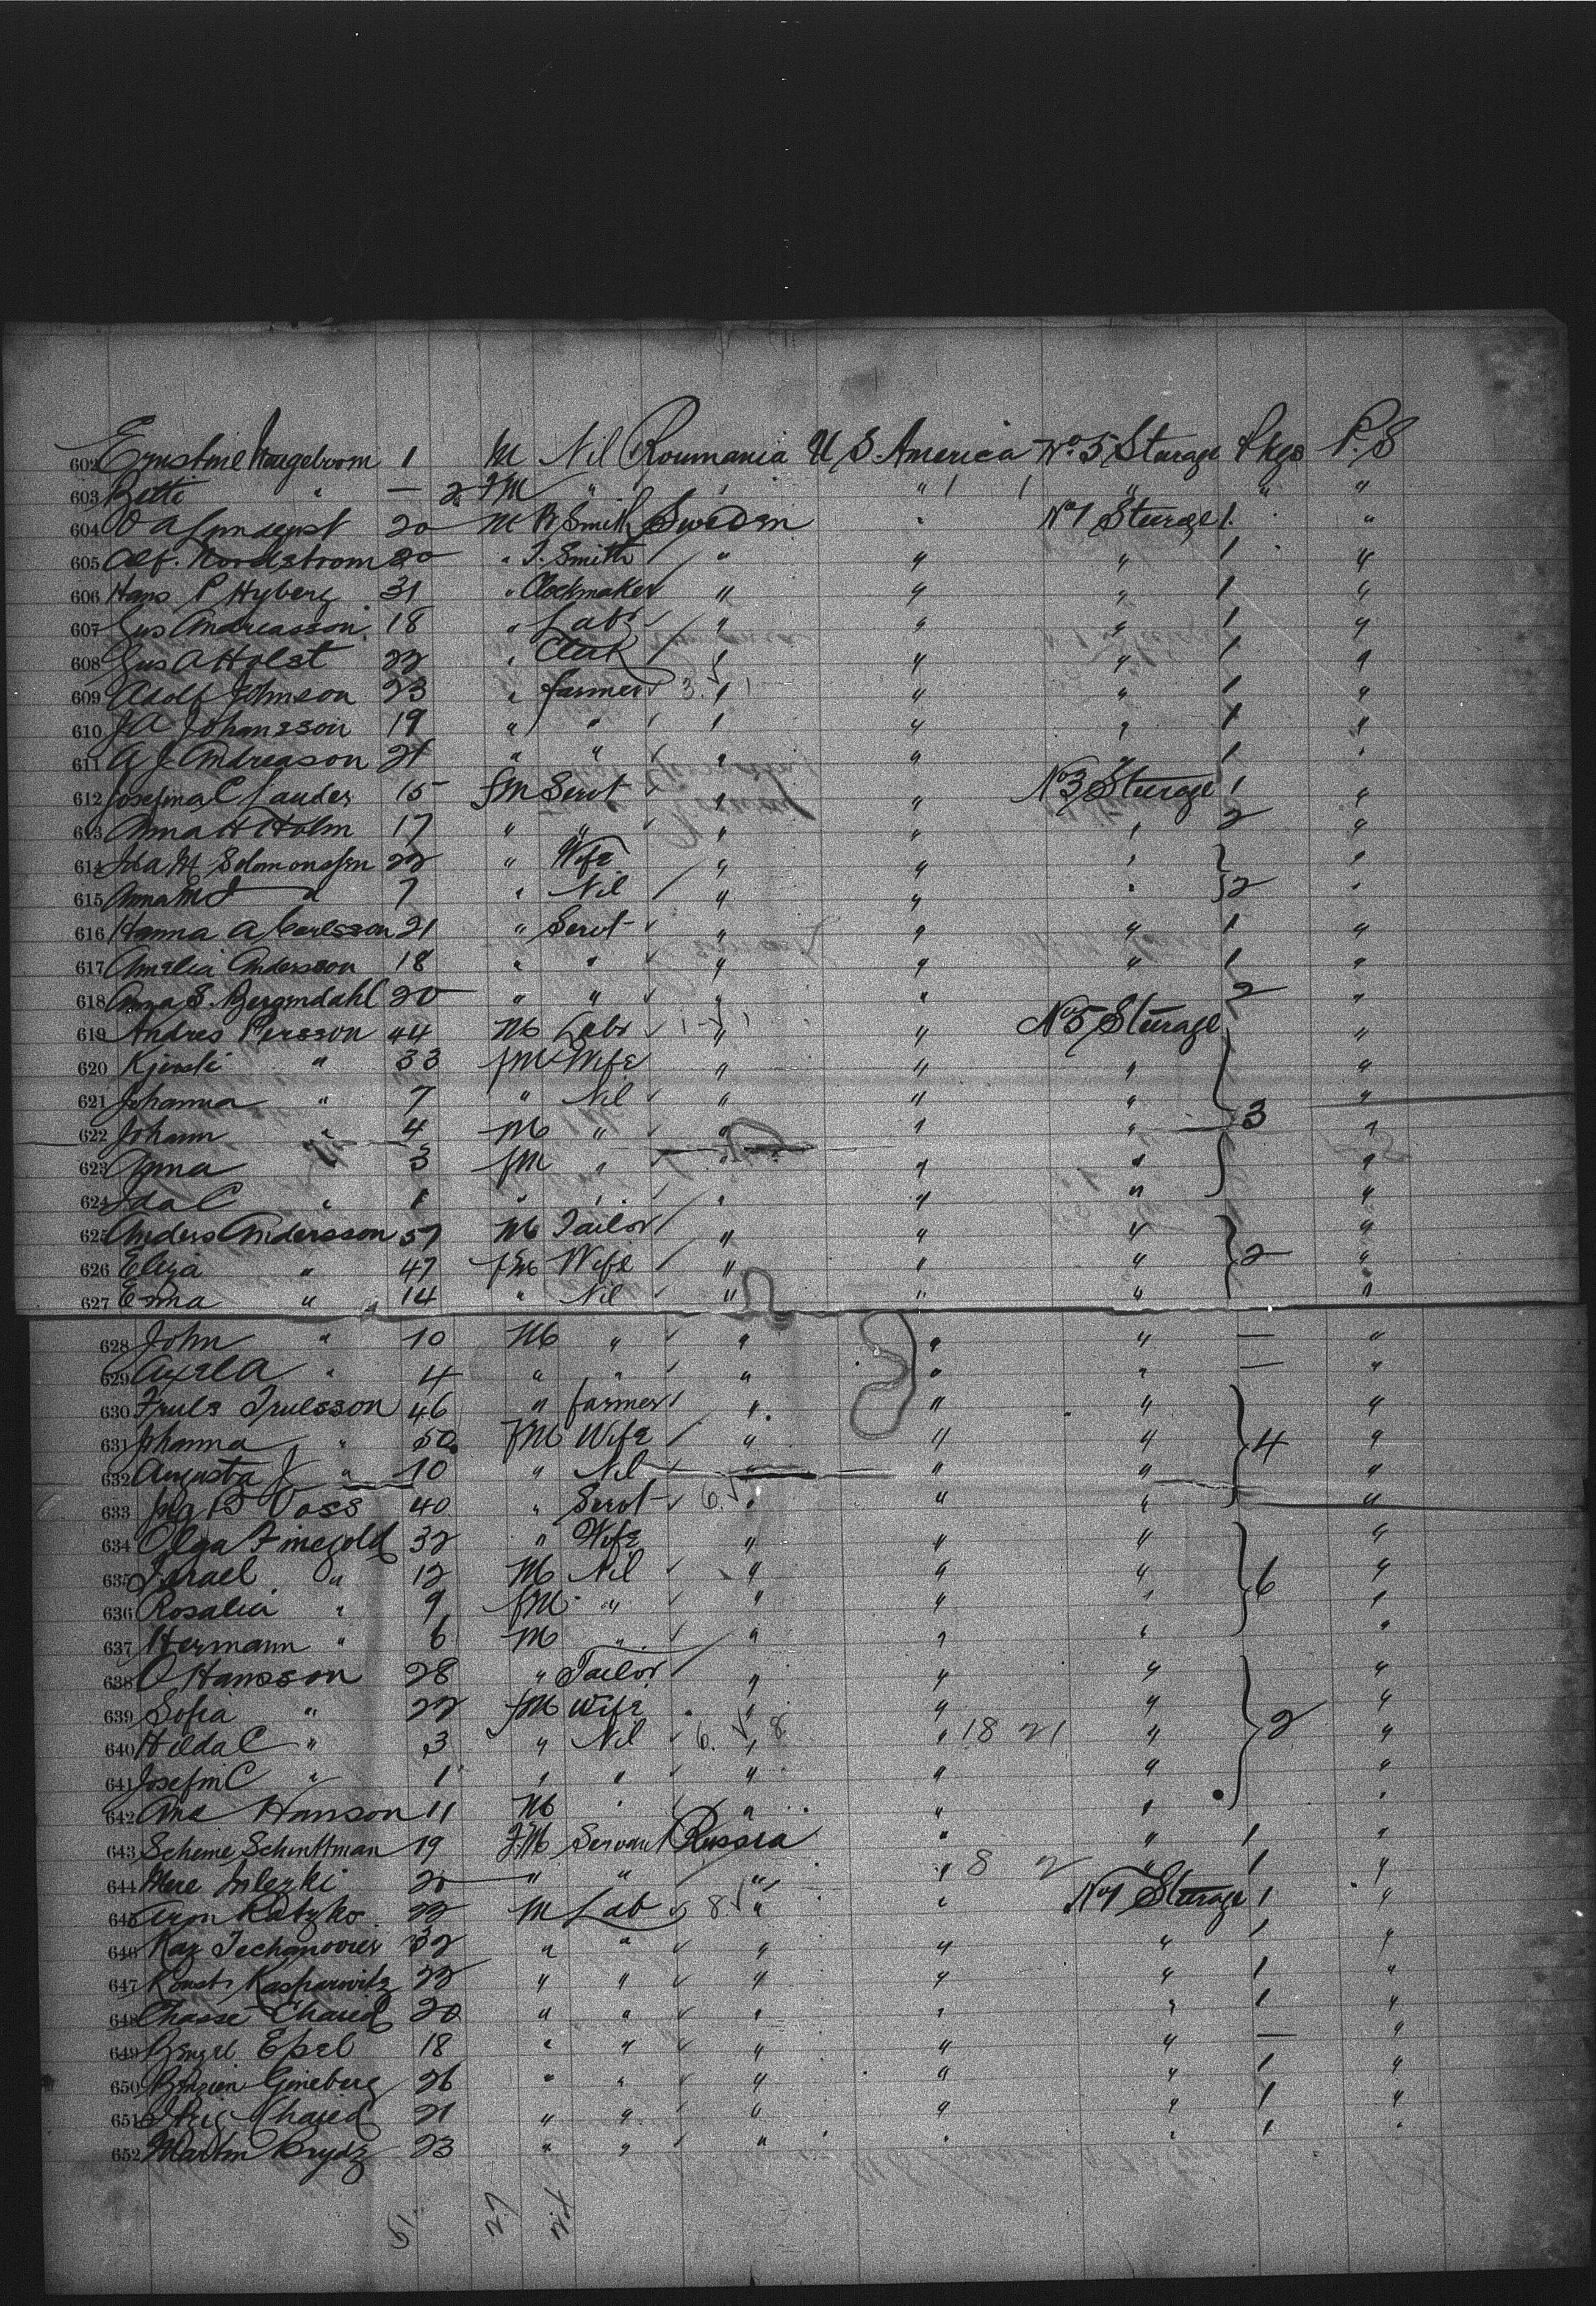 602 Ernstine 1 M Nil Roumania U S. America No 5 Sturage Pkgs P. S
603 Betti " — 2 FM " " " " " "
604 O A 20 M B Smith Sweden " No 1 Sturage 1 " "
605 Alf. Nordstrom 20 " T. Smith " " " 1 "
606 Hans P Hyberg 31 " Clockmaker " " " 1 "
607 Gus Andreasson 18 " Labr " " " 1 "
608 Gus A Holst 22 " Clerk " " " 1 "
609 Adolf Johnson 23 " farmer " " " 1 "
610 J A Johansson 19 " " " " " 1 "
611 A J Andreason 21 " " " " " 1 "
612 Josefina C 15 fM Servt " " No 3 Sturage 1 "
613 Anna H Holm 17 " " " " " 2 "
614 Ida M Solomonssen 22 " Wife " " " "
615 Anna M " 7 " Nil " " " 2 "
616 Hanna A Carlsson 21 " Servt " " " 1 "
617 Amalia Andersson 18 " " " " " 1 "
618 Anna S. Bergendahl 20 " " " " 2 "
619 Andres Persson 44 M Labr " " No 5 Sturage "
620 " 33 fM Wife " " " "
621 Johanna " 7 " Nil " " " "
622 Johann " 4 M " " " " 3 "
623 Anna " 3 fM " " " " "
624 Ida C " 1 " " " " " "
625 Anders Andersson 57 M Tailor " " " "
626 Eliza " 47 fM Wife " " " 2 "
627 Erma " 14 " Nil " " " "
628 John " 10 M " " " " — "
629 Axel A " 4 " " " " " — "
630 Truls Trulsson 46 " farmer " " " "
631 Johanna " 50 FM Wife " " " 4 "
632 Augusta J " 10 " Nil " " " "
633 B Voss 40 " Servt " " " "
634 Olga Finegold 32 " Wife " " " "
635 Israel " 12 M Nil " " " 6 "
636 Rosalia " 9 fM " " " " "
637 Hermann " 6 M " " " " "
638 O Hansson 28 " Tailor " " " "
639 Sofia " 22 fM Wife " " " "
640 Hilda C " 3 " Nil 6. 8 " " 18 21 " 2 "
641 Josefin C " 1 " " " " " "
642 Hanson 11 M " " " " "
643 Scheine Schuttman 19 FM Servant Russia " " 1 "
644 20 " " " " 8 2 " 1 "
645 Aron Katzko 22 M Lab 8 " " No 1 Sturage 1 "
646 Kaz 32 " " " " " 1 "
647 Const. Kasparovitz 22 " " " " " 1 "
648 Chasse 20 " " " " " 1 "
649 18 " " " " " — "
650 26 " " " " " 1 "
651 21 " " " " " 1 "
652 Martin 23 " " " " " 1 "